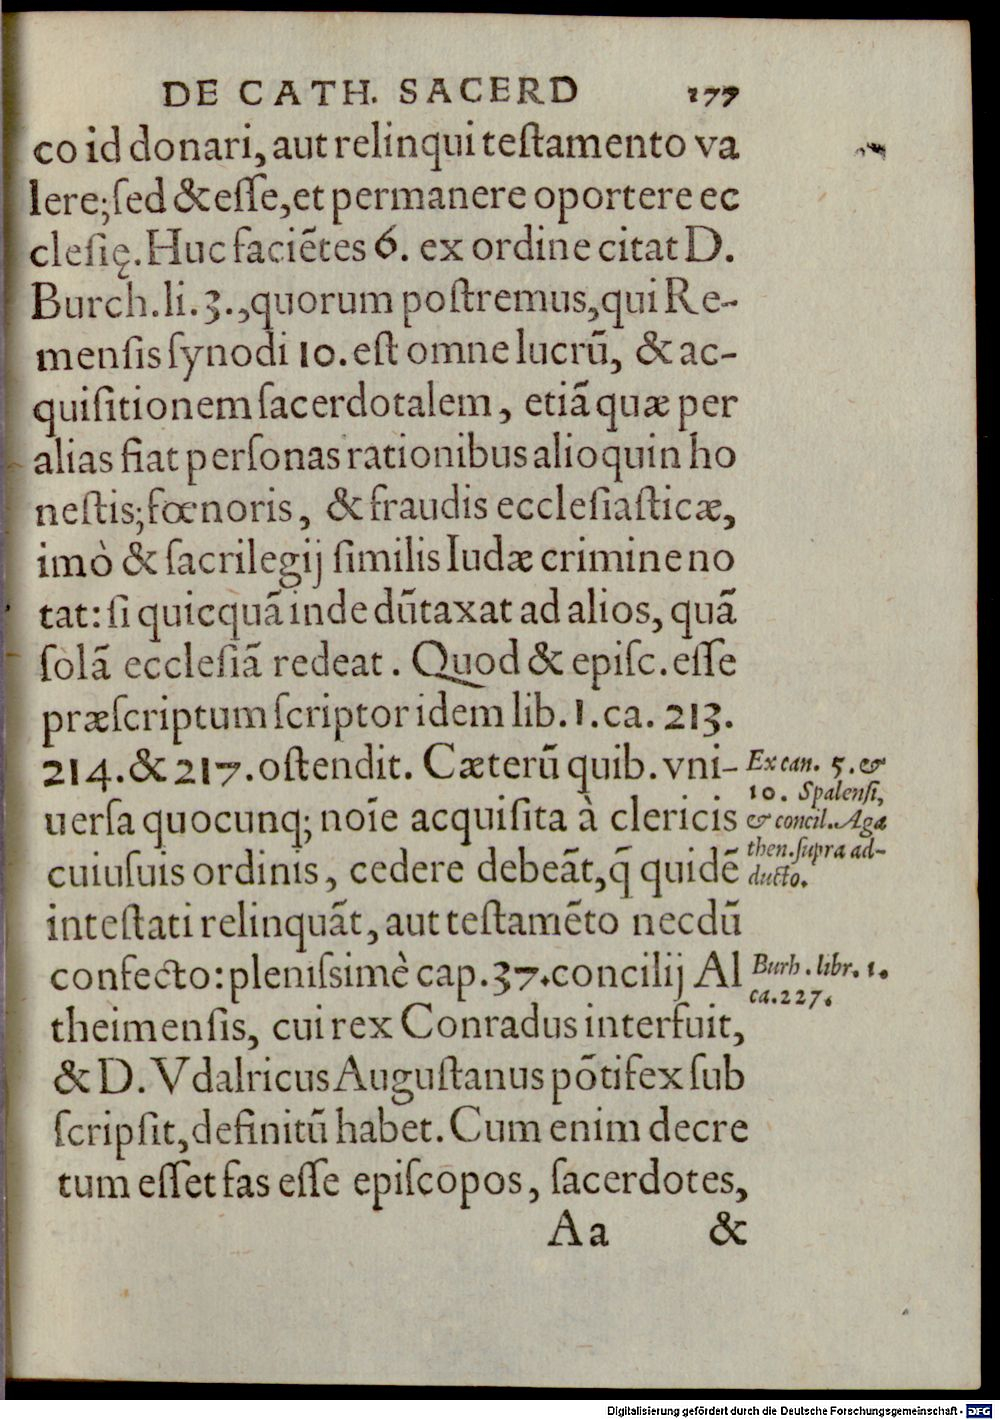 DE CATH. SACERD 177
co id donari, aut relinqui teſtamento va
lere; ſed & eſſe, et permanere oportere ec
cleſię. Huc faciẽtes 6. ex ordine citat D.
Burch. li. 3., quorum poſtremus, qui Re-
menſis ſynodi 10. eſt omne lucrũ, & ac-
quiſitionem ſacerdotalem, etiã quæ per
alias fiat perſonas rationibus alioquin ho
neſtis; fœnoris, & fraudis eccleſiaſticæ,
imò & ſacrilegij ſimilis Iudæ crimine no
tat: ſi quicquã inde dũtaxat ad alios, quã
ſolã eccleſiã redeat. Quod & epiſc. eſſe
præſcriptum ſcriptor idem lib. 1. ca. 213.
214. & 217. oſtendit. Cæterũ quib. vni-
uerſa quocunq; noĩe acquiſita à clericis
cuiuſuis ordinis, cedere debeãt, q̃ quidẽ
inteſtati relinquãt, aut teſtamẽto necdũ
confecto: pleniſſimè cap. 37. concilij Al
theimenſis, cui rex Conradus interfuit,
& D. Vdalricus Auguſtanus põtifex ſub
ſcripſit, definitũ habet. Cum enim decre
tum eſſet fas eſſe epiſcopos, ſacerdotes,
Aa &
Ex can. 5. &
10. Spalenſi,
& concil. Aga
then. ſupra ad-
ducto.
Burh. libr. 1.
ca. 227.
Digitalisierung gefördert durch die Deutsche Forschungsgemeinschaft - DFG